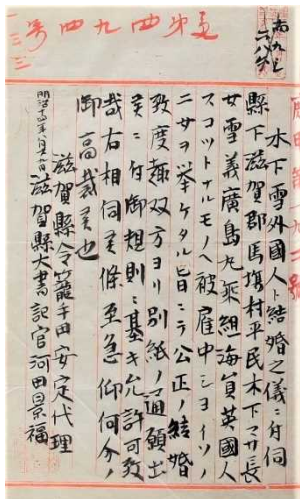 第四九四号
木下雪外国人ト結婚之義ニ付伺
縣下滋賀郡馬場村平民木下マサ長
女雪義廣島丸乗組海員英國人
スコツトナルモノヘ被雇中シヨイソノ
ニサヲ挙ケタル旨ニテ公正ノ結婚
致度趣双方ヨリ別紙ノ通願出
候ニ付御規則ニ基キ允許可致
哉右相伺候條至急仰何分ノ
御高裁候也
滋賀縣令籠手田安定代理
滋賀縣大書記官河田景福
明治